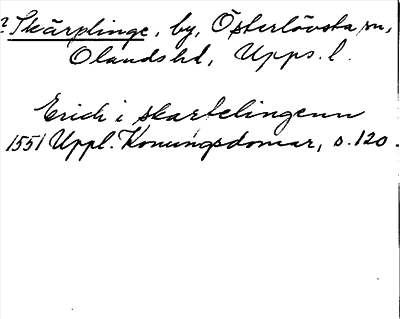 ? Skärplinge, by, Österlövsta sn,
Olands hd, Upps. l.
Erich i skartelingenn
1551 Uppl. Konungsdomar, s. 120.